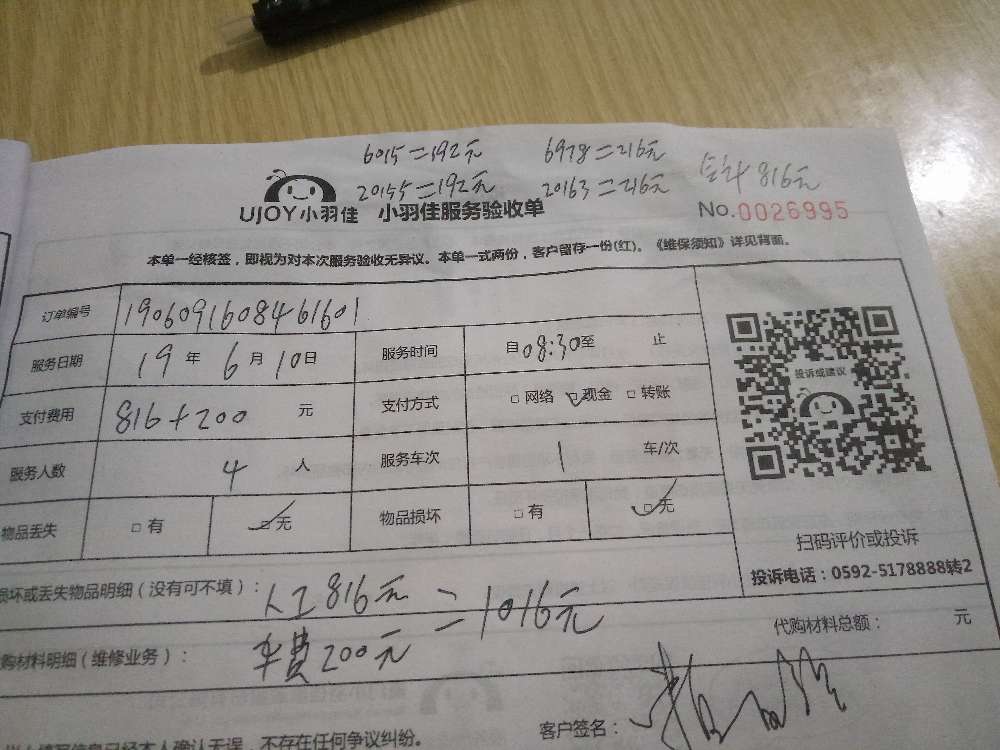 6015=192元 6978=216元
20155=192元 20163=216元 合计816元
UJOY小羽佳 小羽佳服务验收单 No.0026995
本单一经核签，即视为对本次服务验收无异议。本单一式两份，客户留存一份(红)。《维保须知》详见背面。
订单编号 1906091608461601
服务日期 19年6月10日 服务时间 自08:30至 止
支付费用 816+200 元 支付方式 □网络 ☑现金 □转账
服务人数 4 人 服务车次 1 车/次
物品丢失 □有 ☑无 物品损坏 □有 ☑无
投诉或建议
扫码评价或投诉
投诉电话：0592-5178888转2
损坏或丢失物品明细（没有可不填）：人工816元
=1016元
购材料明细（维修业务）：车费200元
代购材料总额： 元
客户签名：
填写信息已经本人确认无误，不存在任何争议纠纷。